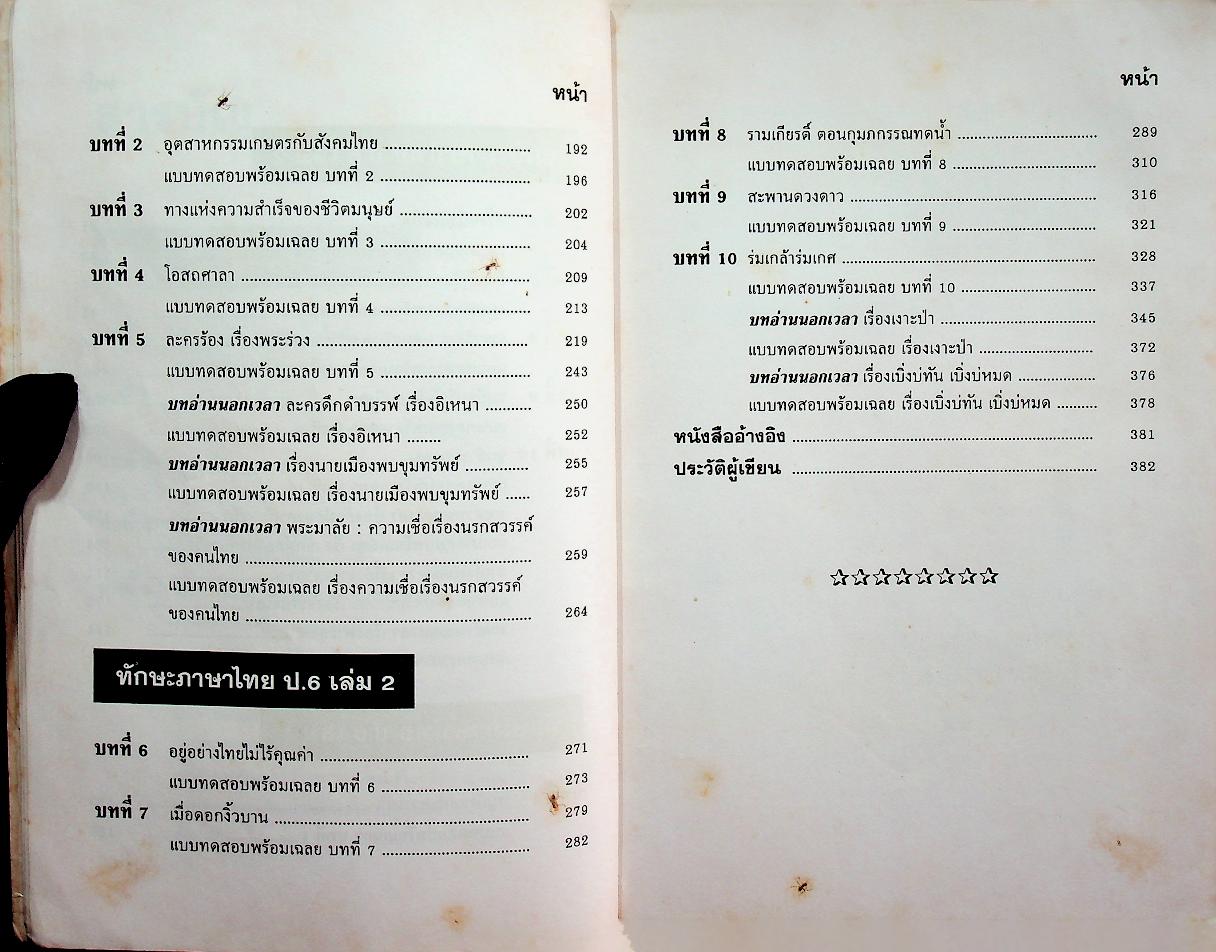 หน้า
บทที่ 2 อุตสาหกรรมเกษตรกับสังคมไทย ................................ 192
แบบทดสอบพร้อมเฉลย บทที่ 2 ................................ 196
บทที่ 3 ทางแห่งความสำเร็จของชีวิตมนุษย์ ................................ 202
แบบทดสอบพร้อมเฉลย บทที่ 3 ................................ 204
บทที่ 4 โอสถศาลา ................................ 209
แบบทดสอบพร้อมเฉลย บทที่ 4 ................................ 213
บทที่ 5 ละครร้อง เรื่องพระร่วง ................................ 219
แบบทดสอบพร้อมเฉลย บทที่ 5 ................................ 243
บทอ่านนอกเวลา ละครดึกดำบรรพ์ เรื่องอิเหนา ........... 250
แบบทดสอบพร้อมเฉลย เรื่องอิเหนา ........ 252
บทอ่านนอกเวลา เรื่องนายเมืองพบขุมทรัพย์ .............. 255
แบบทดสอบพร้อมเฉลย เรื่องนายเมืองพบขุมทรัพย์ ...... 257
บทอ่านนอกเวลา พระมาลัย : ความเชื่อเรื่องนรกสวรรค์
ของคนไทย ................................ 259
แบบทดสอบพร้อมเฉลย เรื่องความเชื่อเรื่องนรกสวรรค์
ของคนไทย ................................ 264
ทักษะภาษาไทย ป.6 เล่ม 2
บทที่ 6 อยู่อย่างไทยไม่ไร้คุณค่า ................................ 271
แบบทดสอบพร้อมเฉลย บทที่ 6 ................................ 273
บทที่ 7 เมื่อดอกงิ้วบาน ................................ 279
แบบทดสอบพร้อมเฉลย บทที่ 7 ................................ 282
หน้า
บทที่ 8 รามเกียรติ์ ตอนกุมภกรรณทดน้ำ ................................ 289
แบบทดสอบพร้อมเฉลย บทที่ 8 ................................ 310
บทที่ 9 สะพานดวงดาว ................................ 316
แบบทดสอบพร้อมเฉลย บทที่ 9 ................................ 321
บทที่ 10 ร่มเกล้าร่มเกศ ................................ 328
แบบทดสอบพร้อมเฉลย บทที่ 10 ................................ 337
บทอ่านนอกเวลา เรื่องเงาะป่า ................................ 345
แบบทดสอบพร้อมเฉลย เรื่องเงาะป่า ........................ 372
บทอ่านนอกเวลา เรื่องเบิ่งบ่ทัน เบิ่งบ่หมด ................. 376
แบบทดสอบพร้อมเฉลย เรื่องเบิ่งบ่ทัน เบิ่งบ่หมด .......... 378
หนังสืออ้างอิง ................................ 381
ประวัติผู้เขียน ................................ 382